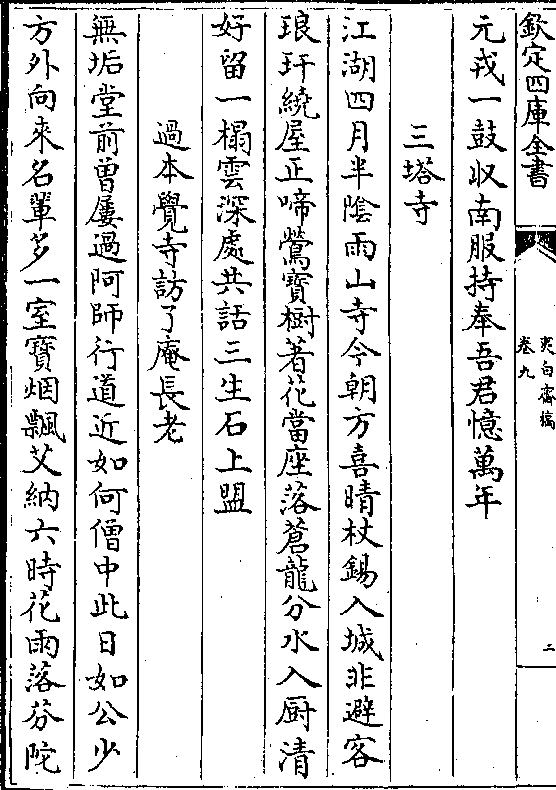 欽定四庫全書
夷白齋稿
卷九
二
元戎一鼓収南服持奉吾君憶萬年
三塔寺
江湖四月半陰雨山寺今朝方喜晴杖錫入城非避客
琅玕繞屋正啼鶯寳樹著花當座落蒼龍分水入厨清
好留一榻雲深處共話三生石上盟
過本覺寺訪了庵長老
無垢堂前曽屢過阿師行道近如何僧中此日如公少
方外向來名軰多一室寳烟飄艾納六時花雨落芬陀